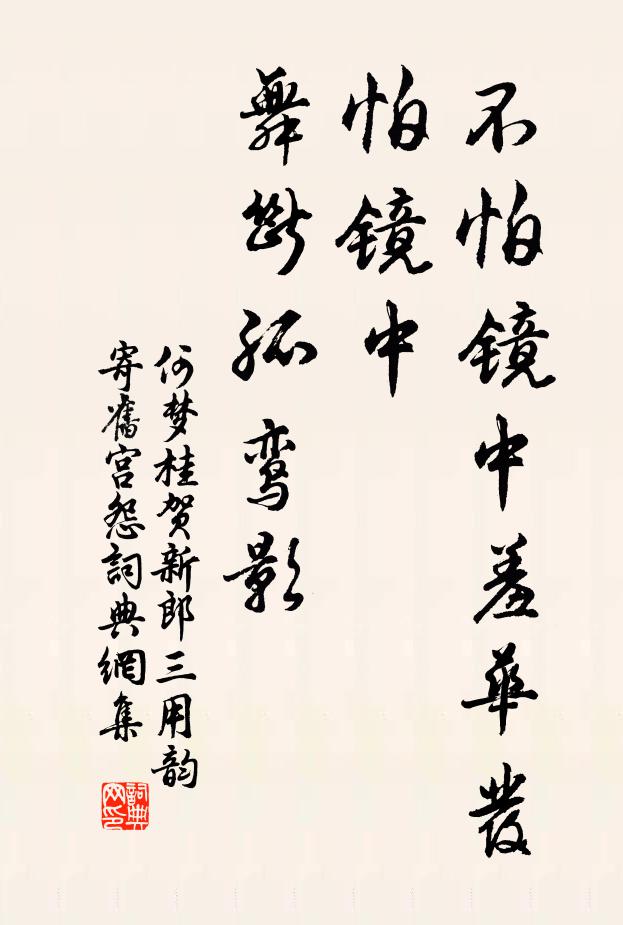 不怕镜中羞华發
怕镜中
舞断孤鸾影
何梦桂贺新郎三用韵
寄舊宫怨詞典網集
詞典网印